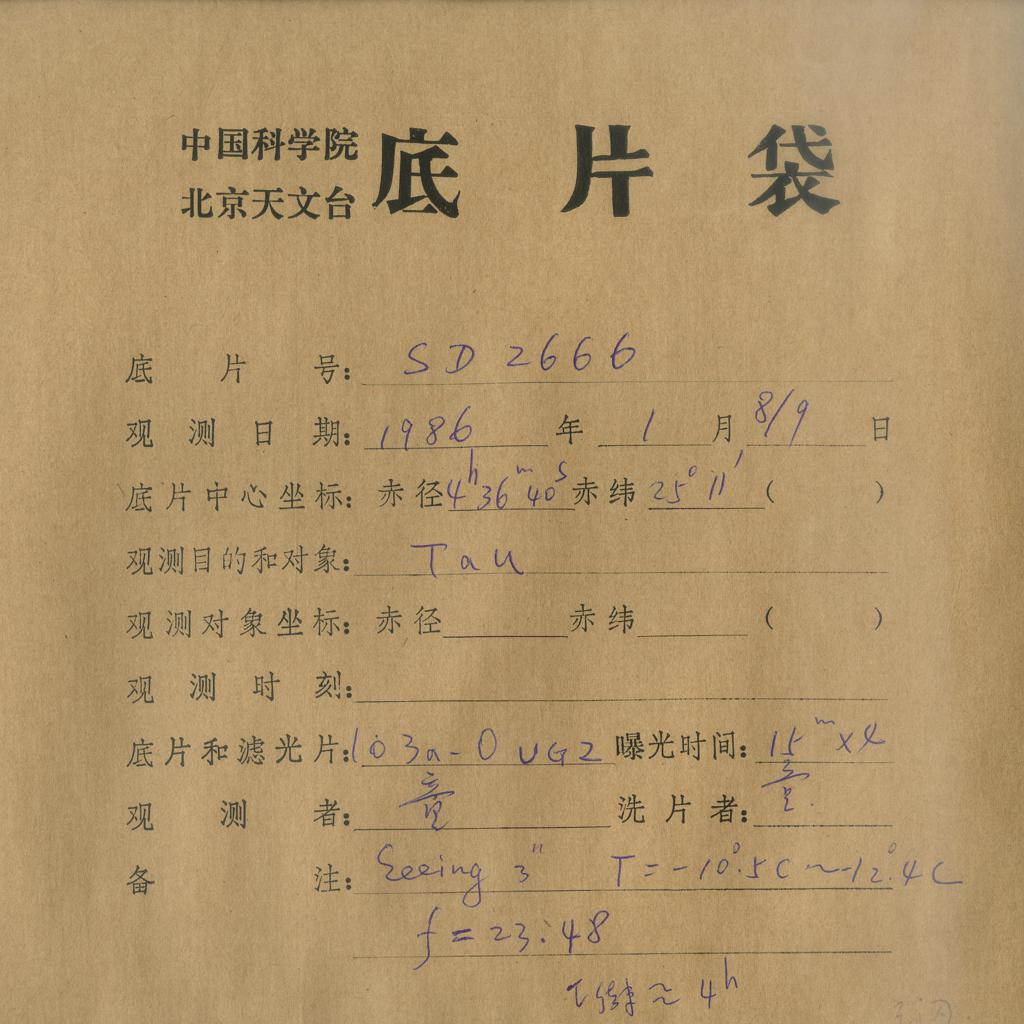 中国科学院
北京天文台
底片袋
底片号: SD 2666
观测日期: 1986年 1月 8/9日
底片中心坐标: 赤径 4h36m40s 赤纬 25°11′ ( )
观测目的和对象: Tau
观测对象坐标: 赤径 赤纬 ( )
观测时刻:
底片和滤光片: 103a-O UG2 曝光时间: 15m×4
观测者: 洗片者:
备注: Seeing 3″ T=-10°.5C~-12°.4C
f=23:48
≈4h